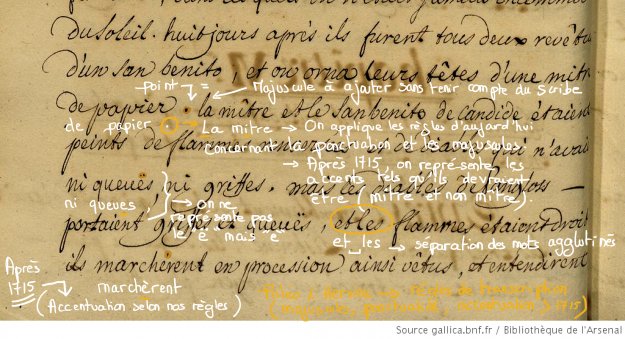 du Soleil. huit jours après ils furent tous deux revêtus
d'un san benito, et on orna leurs têtes d'une mitre
point
Majuscule à ajouter sans tenir compte du scribe
de papier: la mître et le sanbenito de candide étaient
de papier
La mitre
On applique les règles d'aujourd'hui
concernant
ponctuation et les majuscules.
peints de flammes
n'avaient
Après 1715, on représente les
accents tels qu'ils devraient
être (mitre et non mître).
ni queuës, ni griffes. mais les diables de Pangloss
ni queues,
on ne
représente pas
le ë mais e
portaient griffes et queuës, et les flammes étaient droites
et les
séparation des mots agglutinés
ils marchèrent en procession ainsi vêtus, et entendirent
Après
1715
marchèrent
(Accentuation selon nos règles)
1715)
Source gallica.bnf.fr / Bibliothèque de l'Arsenal